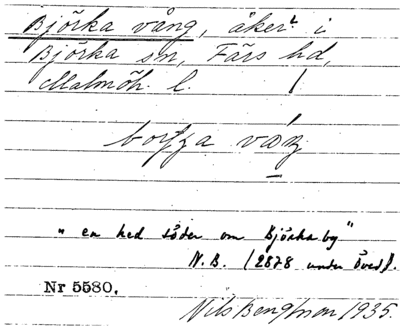 Björka vång, åker i
Björka sn, Färs hd,
Malmöh. l.
"en hed söder om Björka by"
N.B. (2878 under Öved).
Nr 5580.
Nils Bengtsson 1935.